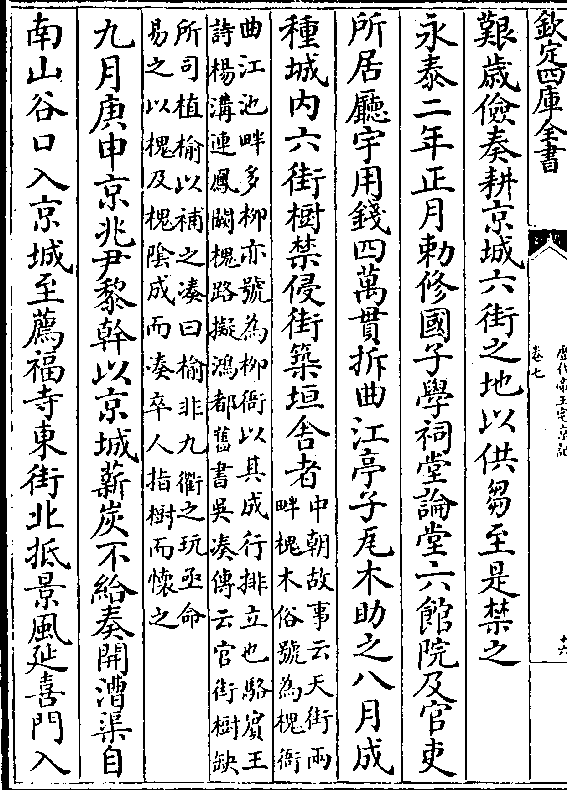 欽定四庫全書
歷代帝王宅京記
卷七
十六
艱歲儉奏耕京城六街之地以供芻至是禁之
永泰二年正月勅修國子學祠堂論堂六館院及官吏
所居廳宇用錢四萬貫拆曲江亭子瓦木助之八月成
種城内六街樹禁侵街築垣舍者
中朝故事云天街兩
畔槐木俗號為槐衙
曲江池畔多柳亦號為柳衙以其成行排立也駱賔王
詩楊溝連鳳闕槐路擬鴻都舊書吳湊傳云官街樹缺
所司植榆以補之湊曰榆非九衢之玩亟命
易之以槐及槐陰成而湊卒人指樹而懷之
九月庚申京兆尹黎幹以京城薪炭不給奏開漕渠自
南山谷口入京城至薦福寺東街北抵景風延喜門入